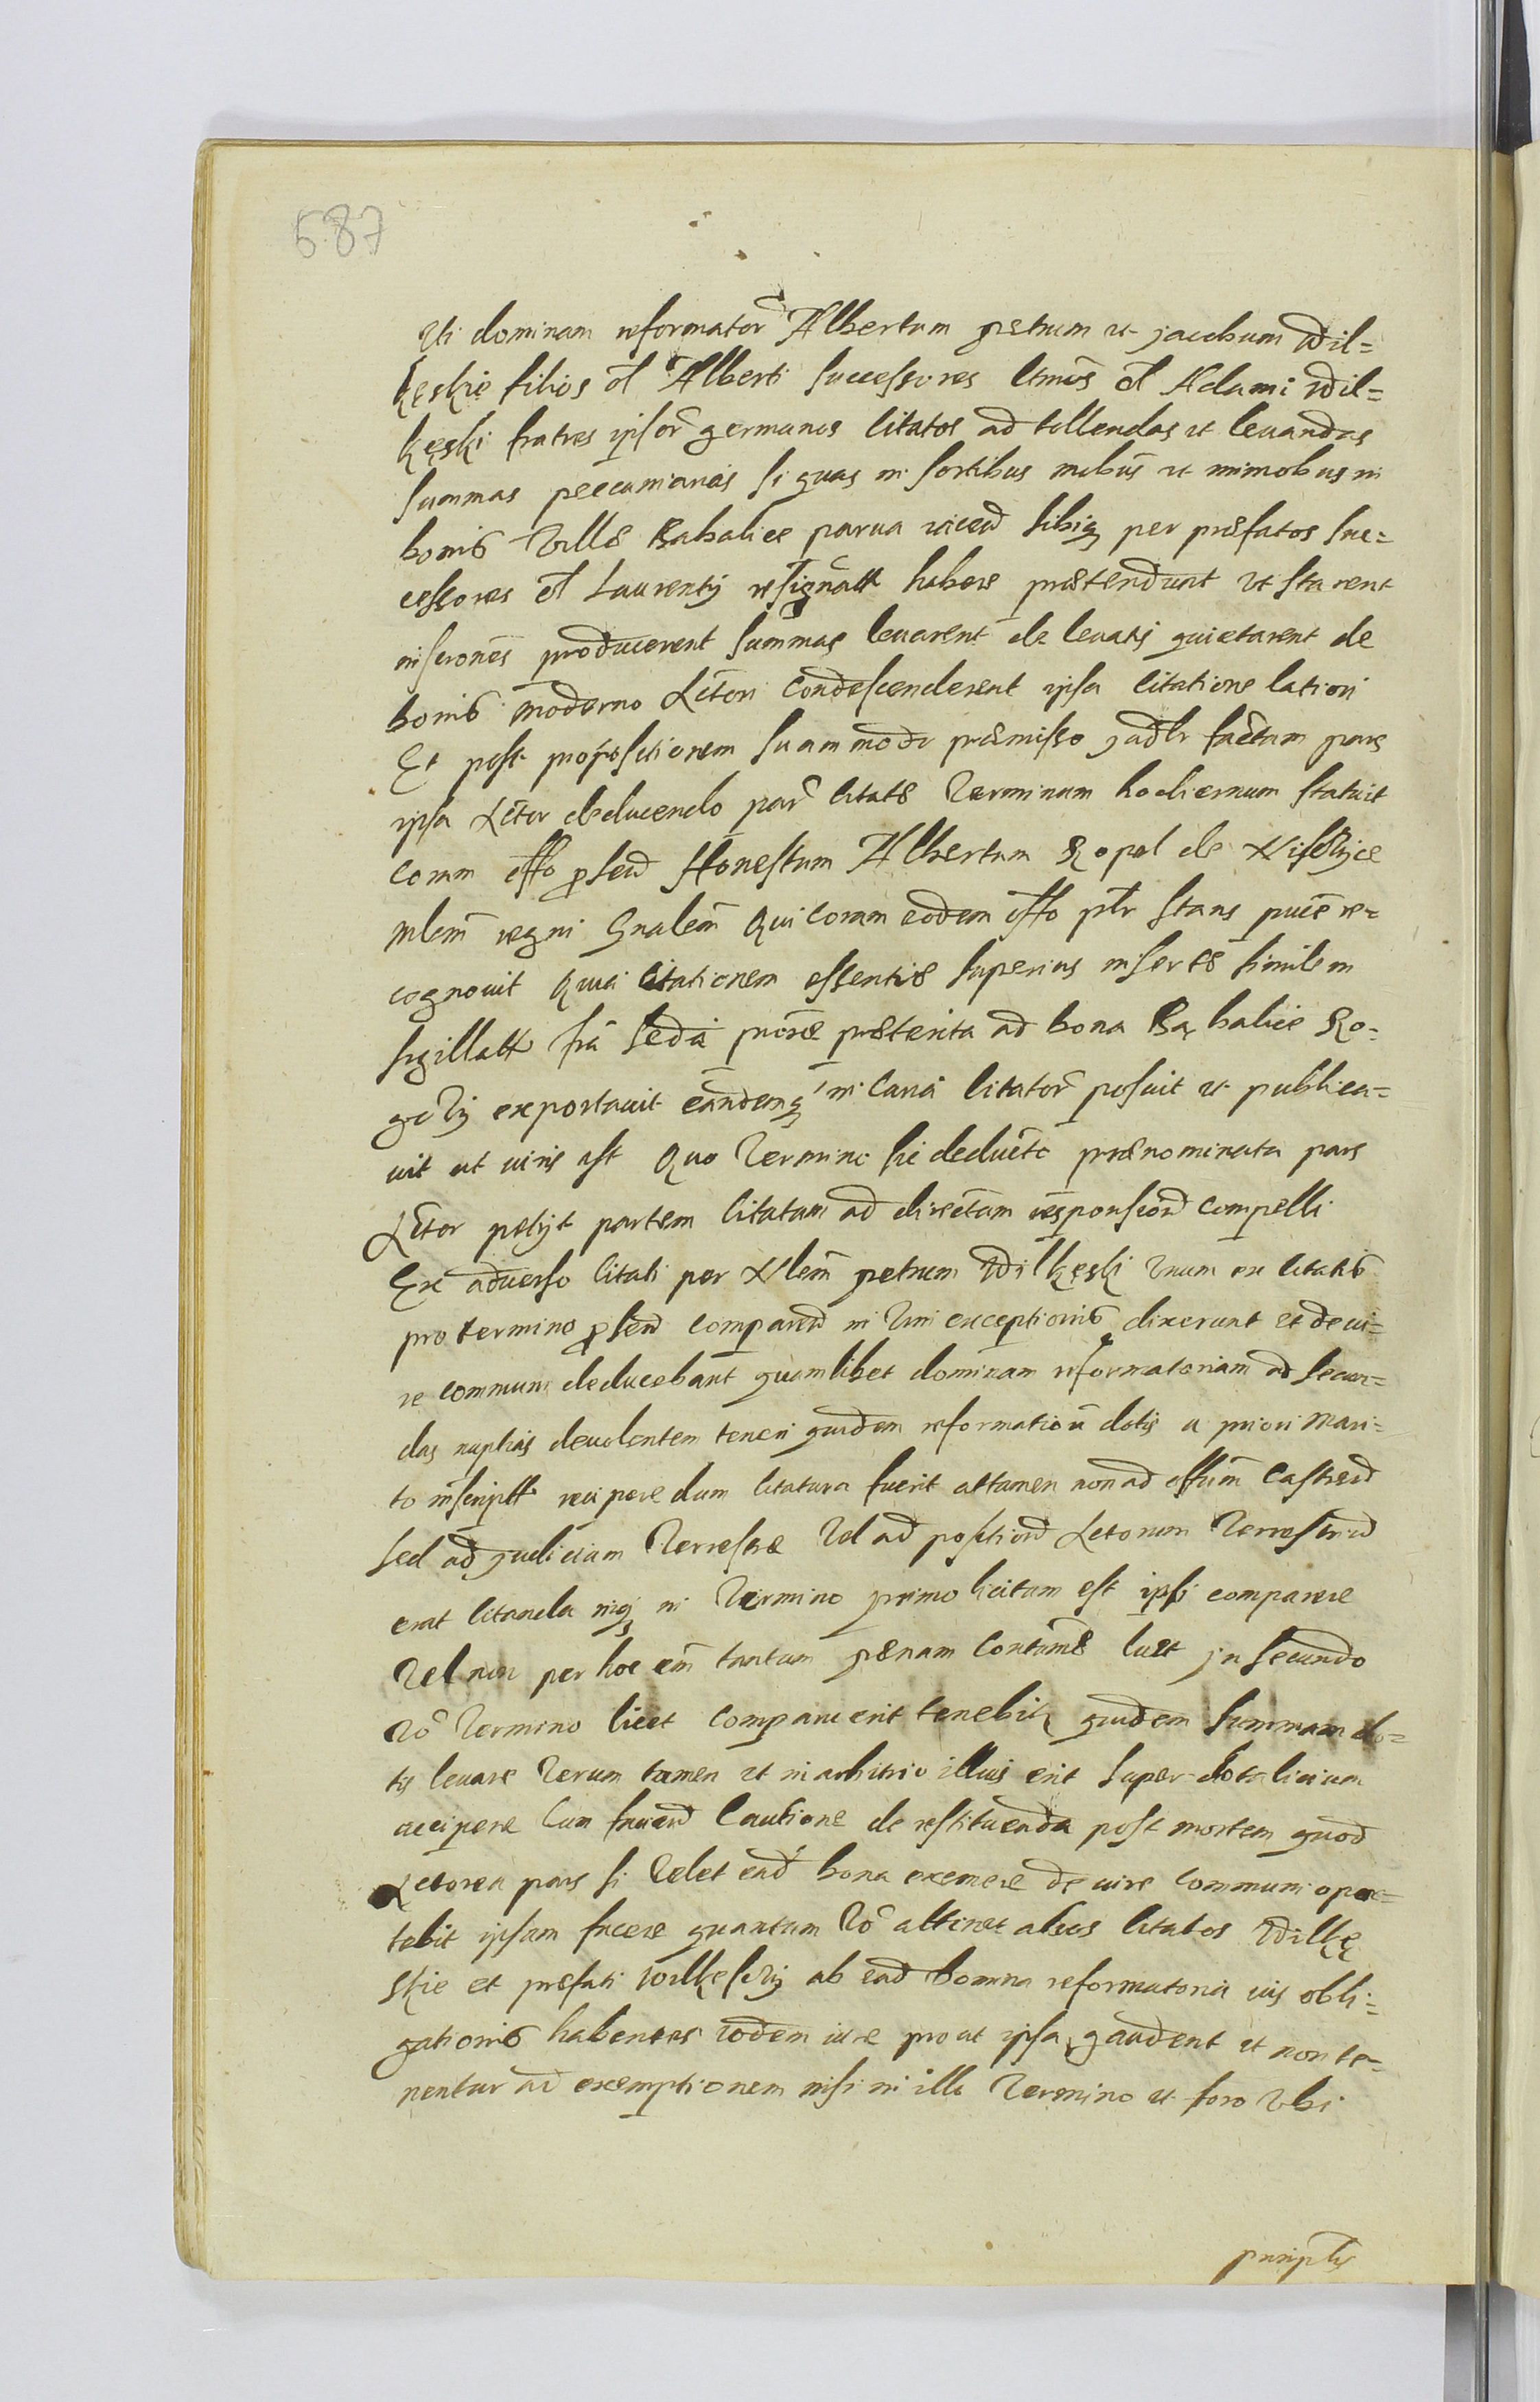 587
Uti dominam reformator Albertum petrum et jacobum Wil=
kęskie filios ol Alberti Successores ltmos ol Adami Wil=
kęski fratres ipsor germanos Citatos ad tollendas et leuandas
Summas peccuniarias si quas in sortibus et minoribus in
bonis Villæ Babalice parua sibiq per præfatos suc=
cessores ol Laurentij resignatt habere prætendunt ut starent
producerent Summas leuarent de leuatis quietarent de
bonis moderno Actori Condescenderent ipsa Citatione latiori
Et post propositionem suam modo præmisso factam pars
ipsa Actor deducendo par citatæ Terminum hodiernum statuit
Coram offo Honestum Albertum Kopel de
Mlem regni Gnalem Qui Coram eodem offo ptr stans re=
cognouit Quia Citationem essentiæ superius insertæ similem
sigillatt fra secda præterita ad bona Babalice Ro=
exportauit eandemq in Curia Citator posuit et publica=
uit ut iuris est Quo Termino sic deducto prænominata pars
Actor petijt partem Citatam ad directam responsiond Compelli
Ex aduerso Citati per Nlem petrum Wilkęski Vnum ex Citatis
pro termino comparend in Vim exceptionis dixerunt et de iu=
re communi deducebant quamlibet dominam reformatoriam ad secun=
das nuptias deuolentem teneri quidem reformationem dotis a priori mari=
to inscriptt recipere dum Citatura fuerit attamen non ad offum Castrend
sed ad judicium Terrestre Vel ad positiond Actorum Terrestriud
erat Citanda niq in Termino primo licitum est ipsi comparere
Vel non per hoc eni tantum pœnam Contumæ luet jn secundo
Vo Termino licet comparuerit tenebitr quidem summam do=
tis leuare Verum tamen et in arbitrio illius erit super dotalicium
accipere Cum Cautione de restituenda post mortem quod
Actorea pars si Velet ead bona exemere de iure communi opor=
tebit ipsam facere quantum Vo attinet alios Citatos Wilkę
skie et præfati ab ead Domina reformatoria ius obli=
gationis habentes eodem iure prout ipsa gaudent et non te=
nentur ad exemptionem nisi in illo Termino et foro Vbi